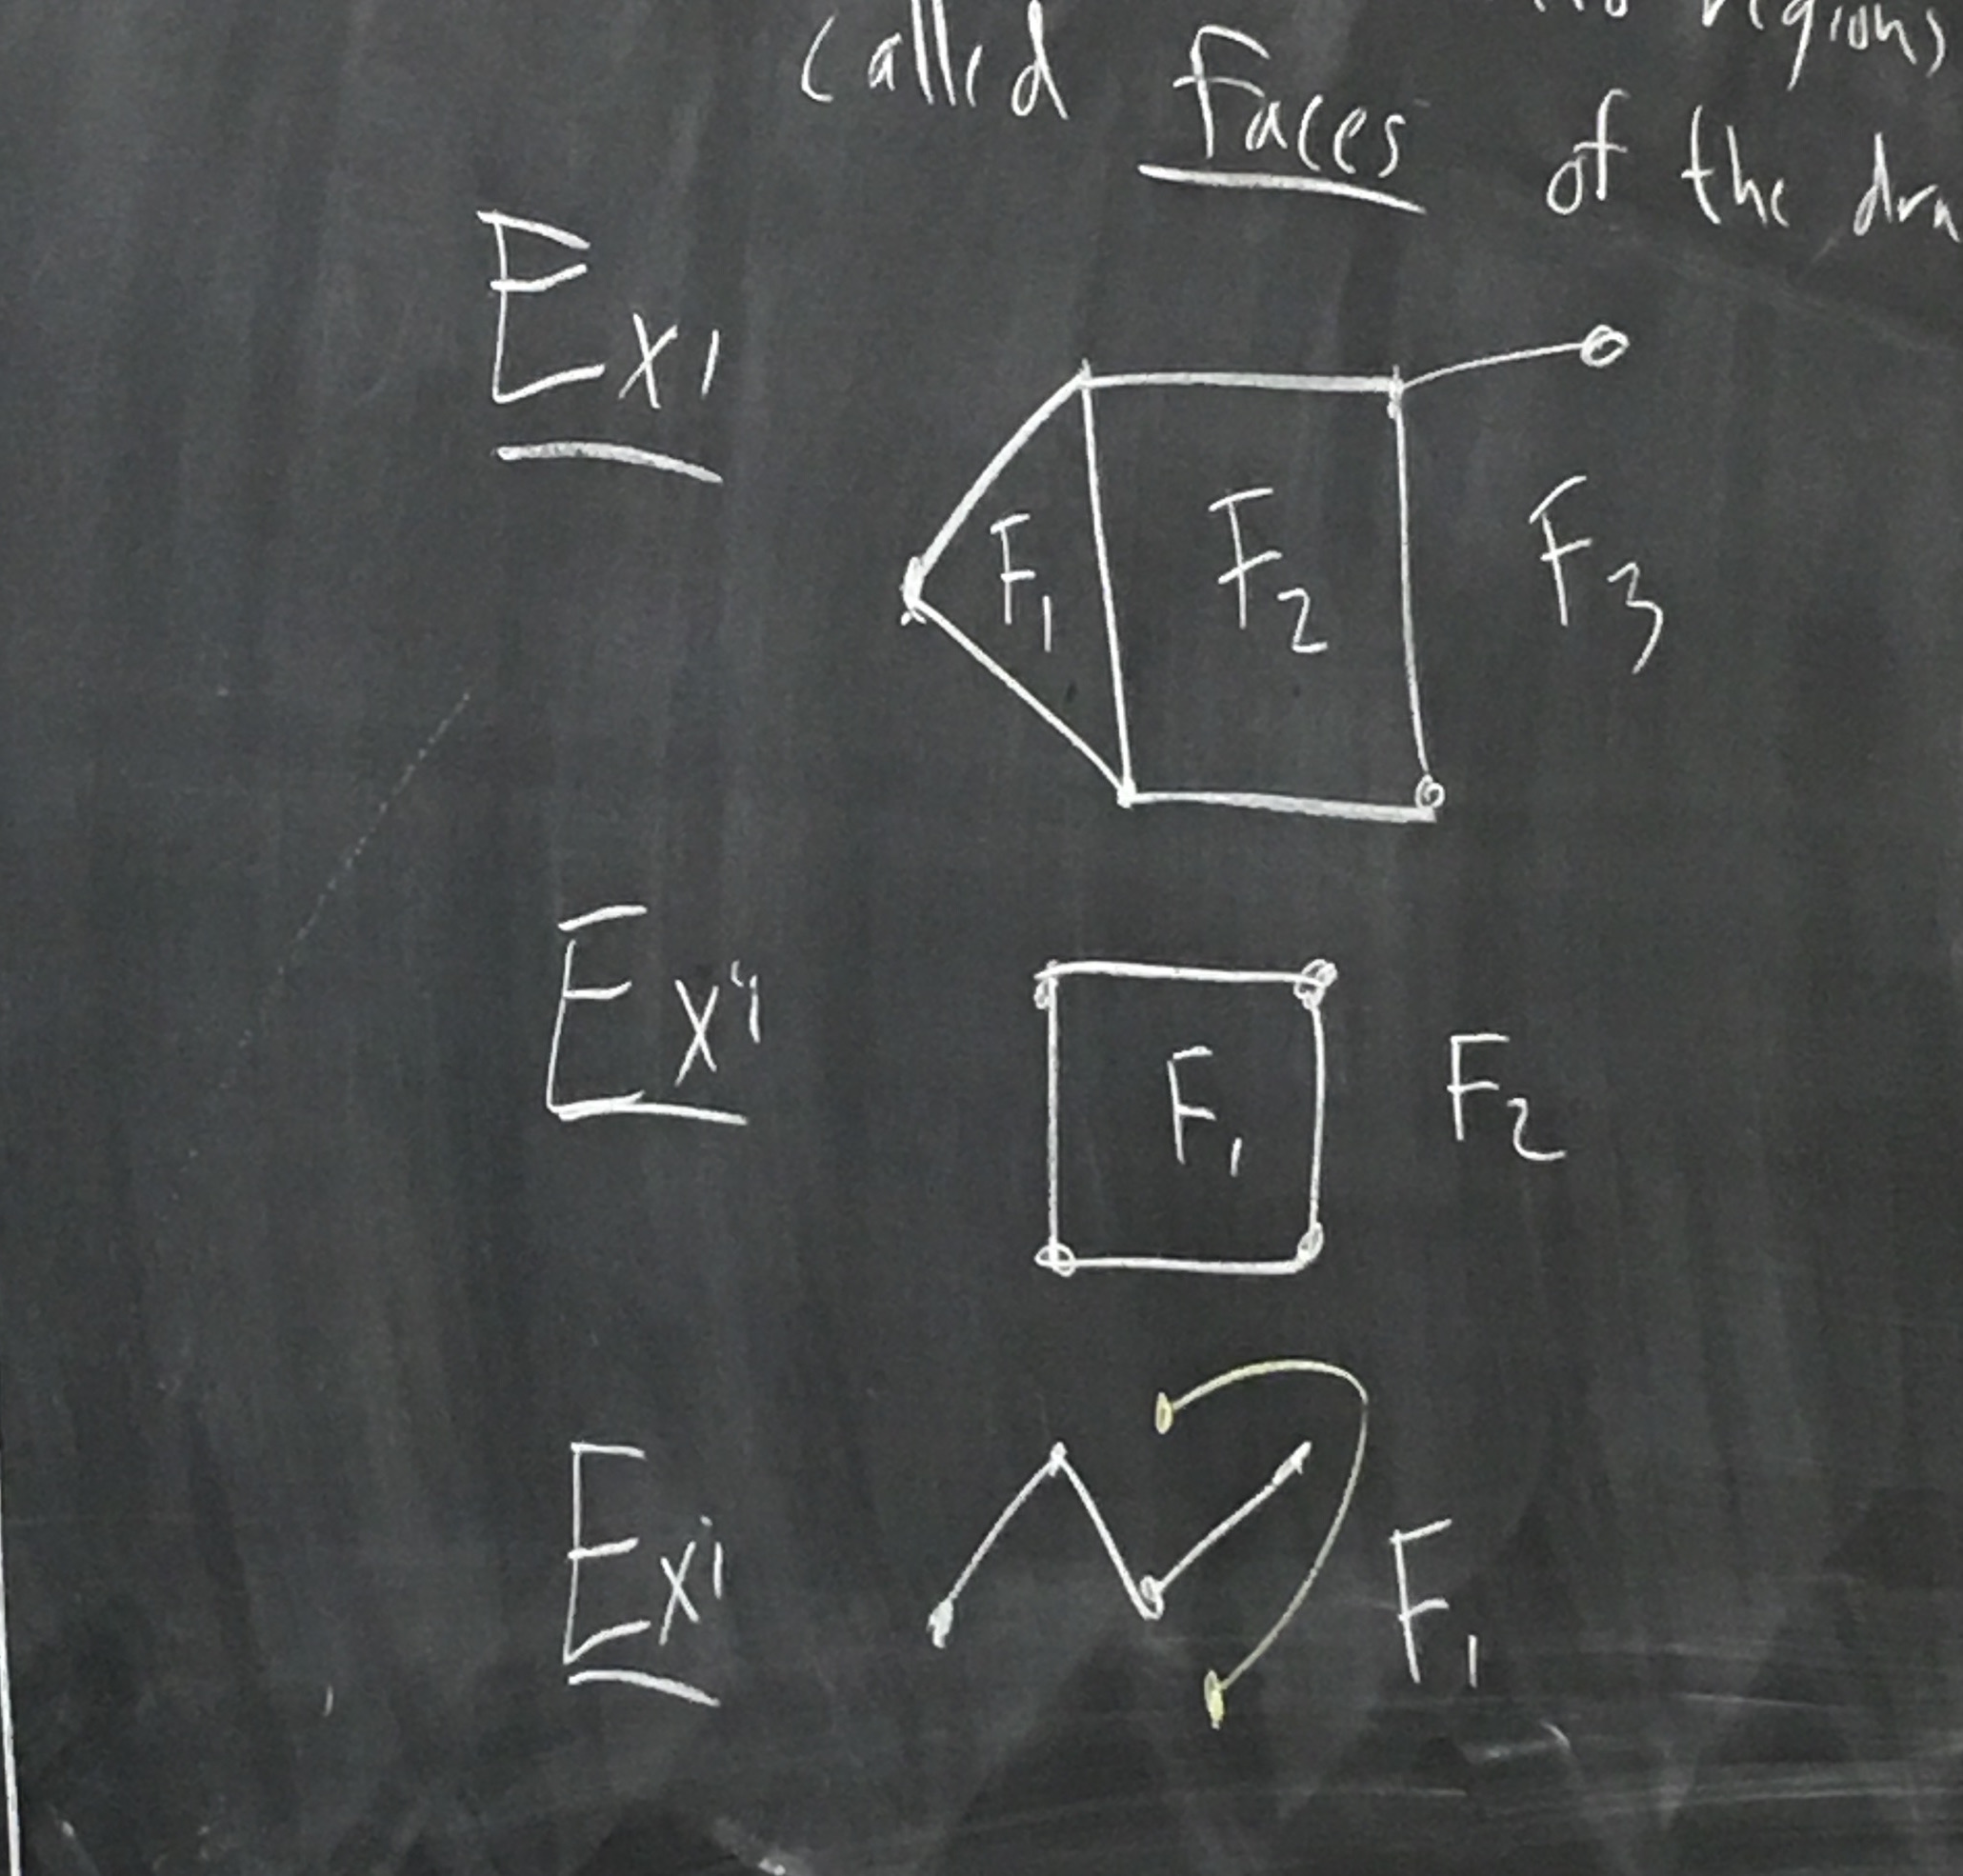 regions
called Faces of the dra
Ex:
F₁ F₂ F₃
Ex:
F₁ F₂
Ex:
F₁